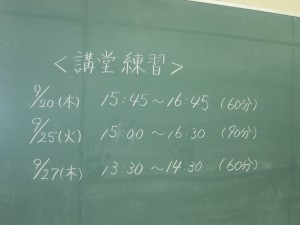 <講堂練習>
9/20(木) 15:45〜16:45 (60分)
9/25(火) 15:00〜16:30 (90分)
9/27(木) 13:30〜14:30 (60分)